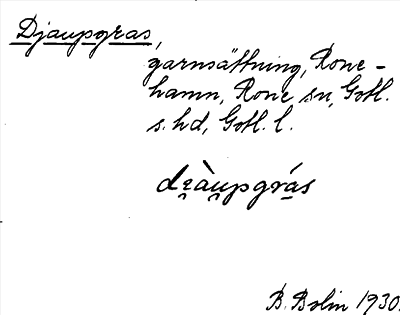 Djaupgras,
garnsättning, Rone-
hamn, Rone sn, Gotl.
s. hd, Gotl. l.
di̯àu̯pgrás
B. Bolin 1930.